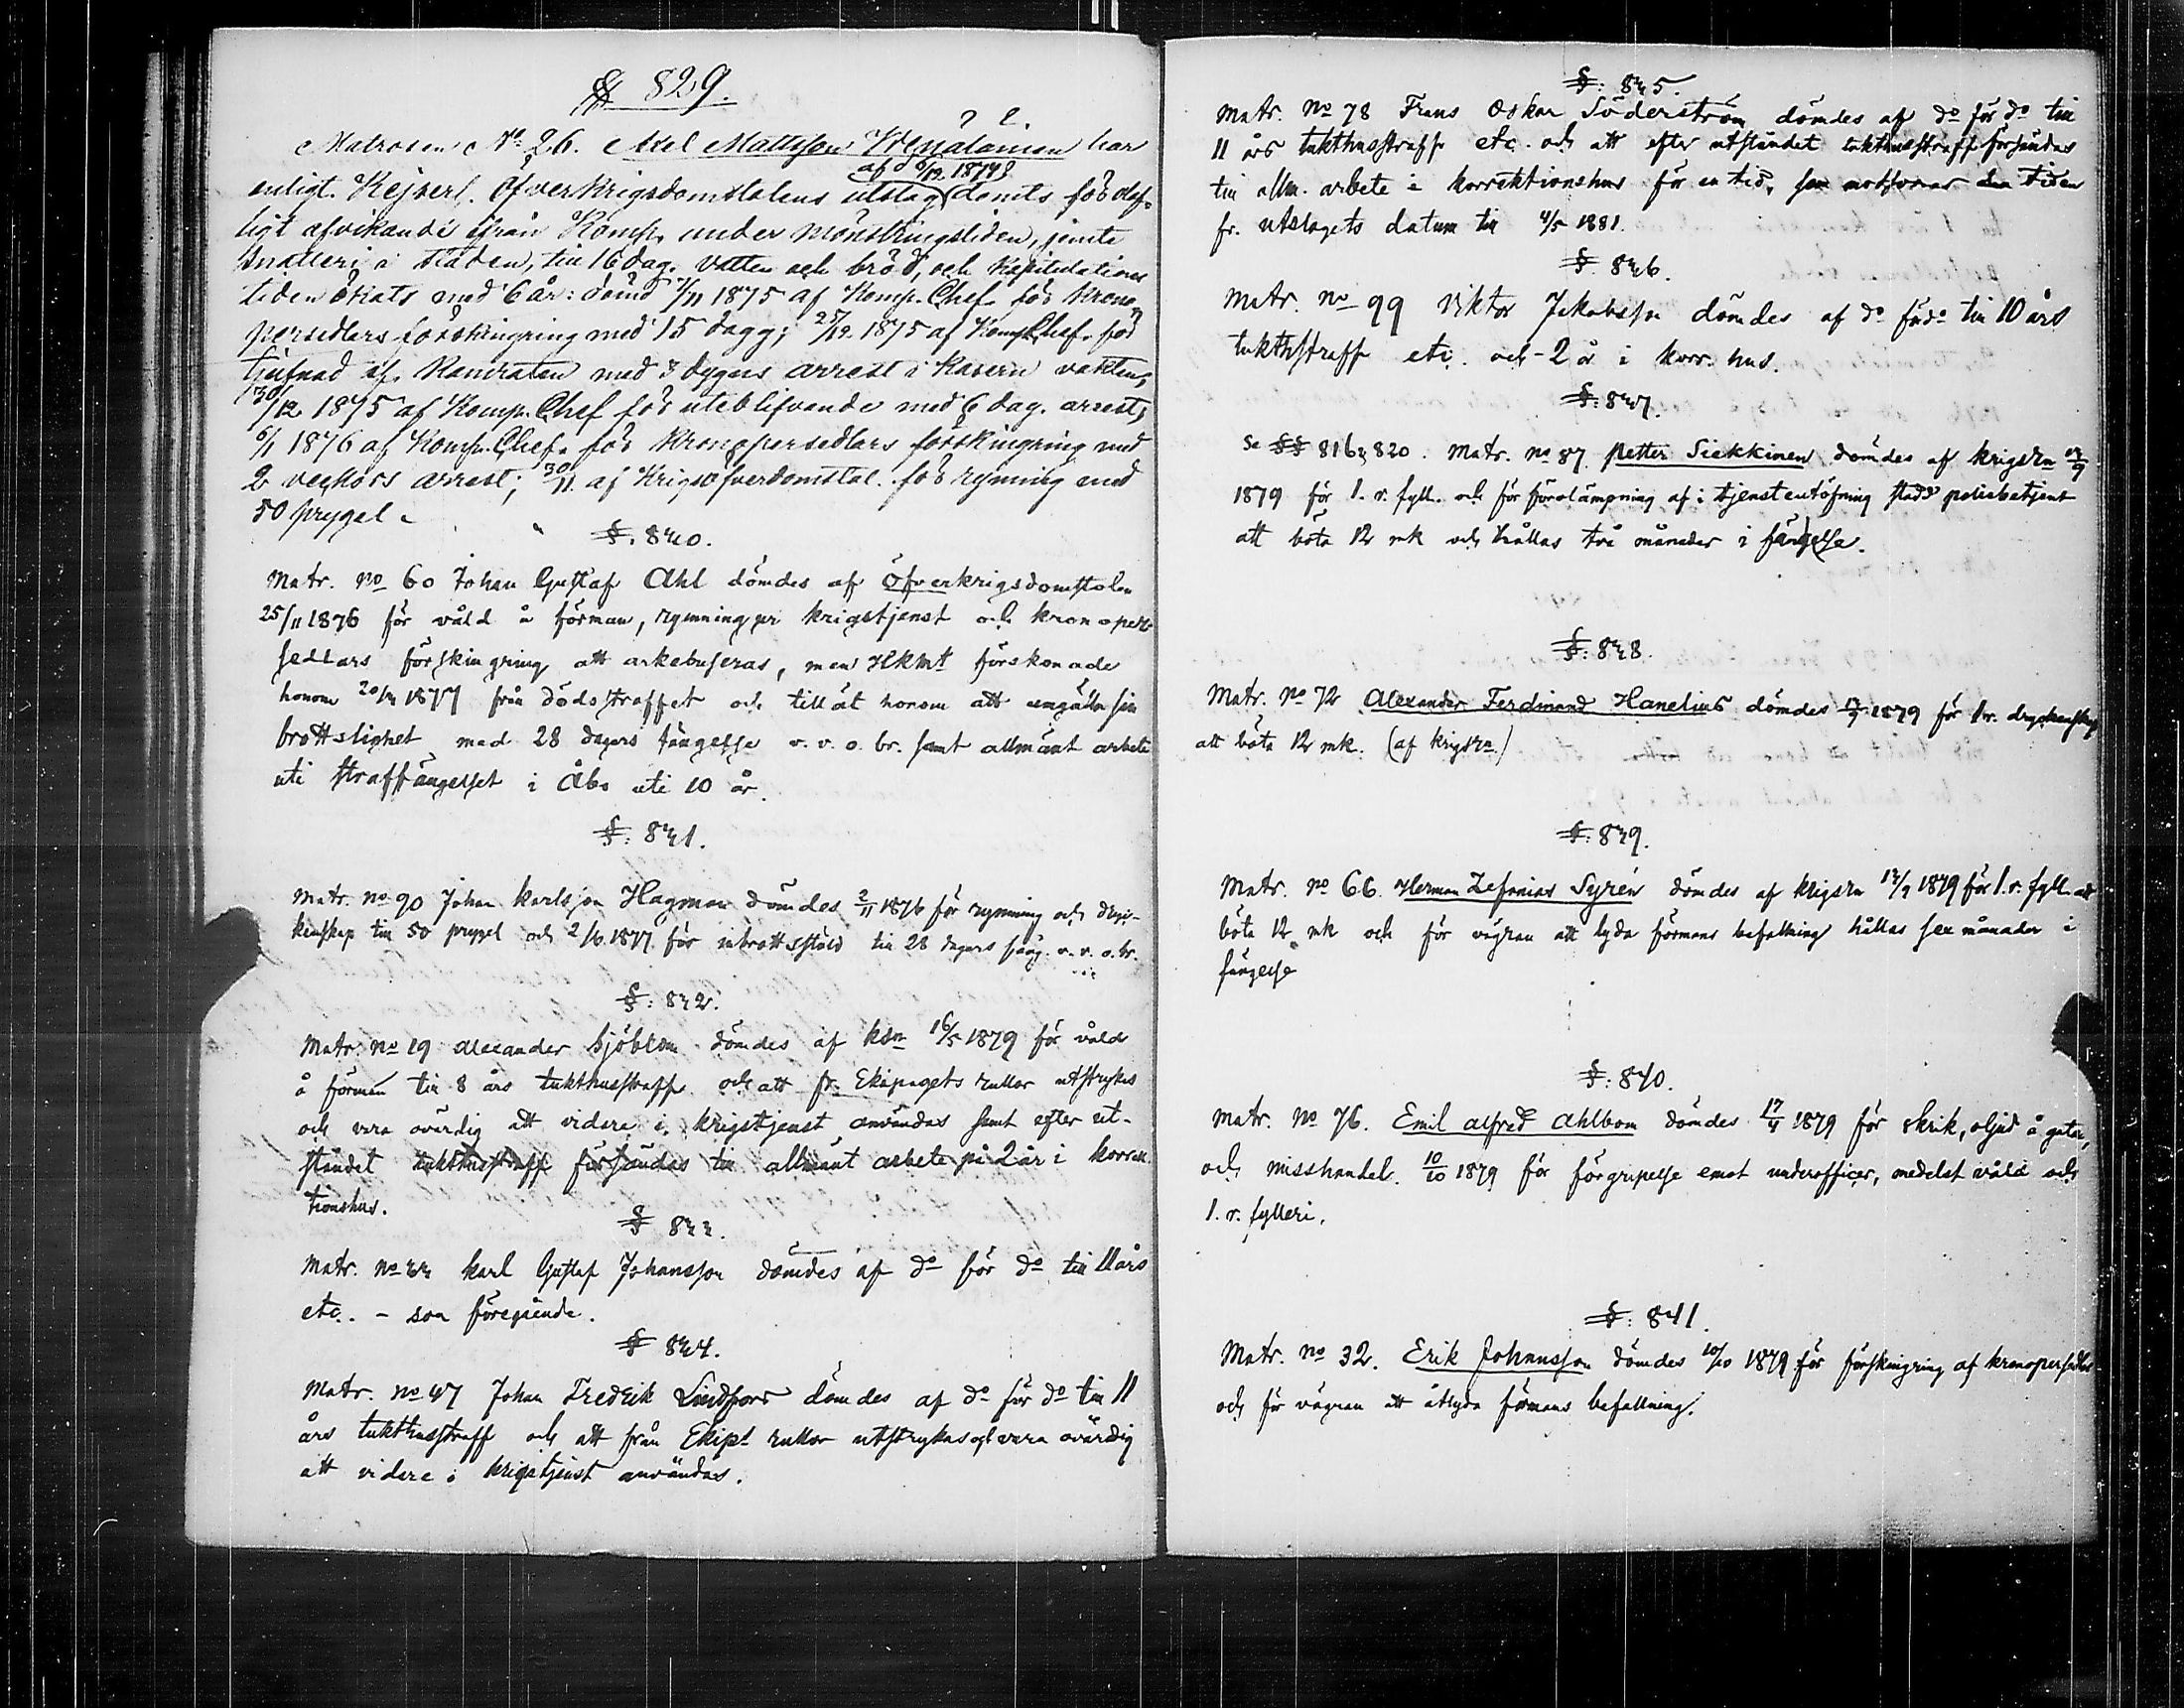 § 829.
Matrosen No 26. Axel Mattsson Wesalainen har
af 6/12 1874
enligt Kejserl. Öfverkrigsdomstolens utslag dömts för olof-
ligt afvikande ifrån Komp. under mönstringstiden, jemte
snatteri i staden, till 16 dag. vatten och bröd, och Kapitulations
tiden ökats med 6 år: dömd /11 1875 af Komp. Chef för krono-
persedlars förskingring med 15 dagg; 25/12 1875 af Komp. Chef för
tjufnad af Kamraten med 8 dygns arrest i Kasern vakten,
30/12 1875 af Komp. Chef för uteblifvande med 6 dag. arrest;
6/1 1876 af Komp. Chef för kronopersedlars förskingring med
2 veckors arrest; 30/11 af Krigsöfverdomstol. för rymning med
50 prygel.
§. 830.
Matr. No 60 Johan Gustaf Ahl dömdes af öfverkrigsdomstolen
25/11 1876 för våld å förman, rymning ur krigstjenst och kronoper-
sedlars förskingring att arkebuseras, men HKMt förskonade
honom 20/3 1877 från dödsstraffet och tillät honom att umgälla sin
brottslighet med 28 dagars fängelse v. v. o. br. samt allmänt arbete
uti straffängelset i Åbo uti 10 år.
§: 831.
Matr. No 90 Johan Karlsson Hagman dömdes 2/11 1876 för rymning och dryc-
kenskap till 50 prygel och 2/10 1877 för inbrottsstöld till 28 dagars fäng. v. v. o. br.
§: 832.
Matr. No 19 Alexander Sjöblom dömdes af ksrn 16/5 1879 för våld
å förman till 8 års tukthusstraff och att fr. Ekipagets rullor utstrykas
och vara ovärdig att vidare i krigstjenst användas samt efter ut-
ståndet tukthusstraff försändas till allmänt arbete på 2 år i korrek-
tionshus.
§ 833.
Matr. No 33 Karl Gustaf Johansson dömdes af do för do till 11 års
etc. - som föregående.
§ 834.
Matr. No 47 Johan Fredrik Lindfors dömdes af do för do till 11
års tukthusstraff och att från Ekipts rullor utstrykas och vara ovärdig
att vidare i krigstjenst användas.
§: 835.
Matr. No 78 Frans Oskar Söderström dömdes af do för do till
11 års tukthusstraff etc. och att efter utståndet tukthusstraff försändas
till allm. arbete i korrektionshus för en tid, som motsvarar den tiden
fr. utslagets datum till 4/5 1881.
§ 836.
Matr. No 99 Viktor Jakobsson dömdes af do för do till 10 års
tukthstraff etc. och 2 år i korr. hus.
§: 837.
Se §§ 816, 820. Matr. No 87. Petter Siekkinen dömdes af krigsrn 13/9
1879 för 1. r. fyll. och för förolämpning af i tjensteutöfning stadd polisbetjent
att böta 12 mk och hållas två månader i fängelse.
§: 838.
Matr. No 72 Alexander Ferdinand Hanelius dömdes /9 1879 för 1 r. dryckenskap
att böta 12 mk. (af krigsrn)
§: 839.
Matr. No 66. Herman Zefanias Syrén dömdes af krigsrn 13/9 1879 för 1. r. fyll. att
böta 12 mk och för vägran att lyda förmans befallning hållas sex månader i
fängelse
§: 840.
Matr. No 76. Emil Alfred Ahlbom dömdes 17/4 1879 för skrik, oljud å gatan,
och misshandel. 10/10 1879 för förgripelse emot underofficer, medelst våld och
1. r. fylleri.
§: 841.
Matr. No 32. Erik Johansson dömdes 10/10 1879 för förskingring af kronopersedlar
och för vägran att åtlyda förmans befallning.